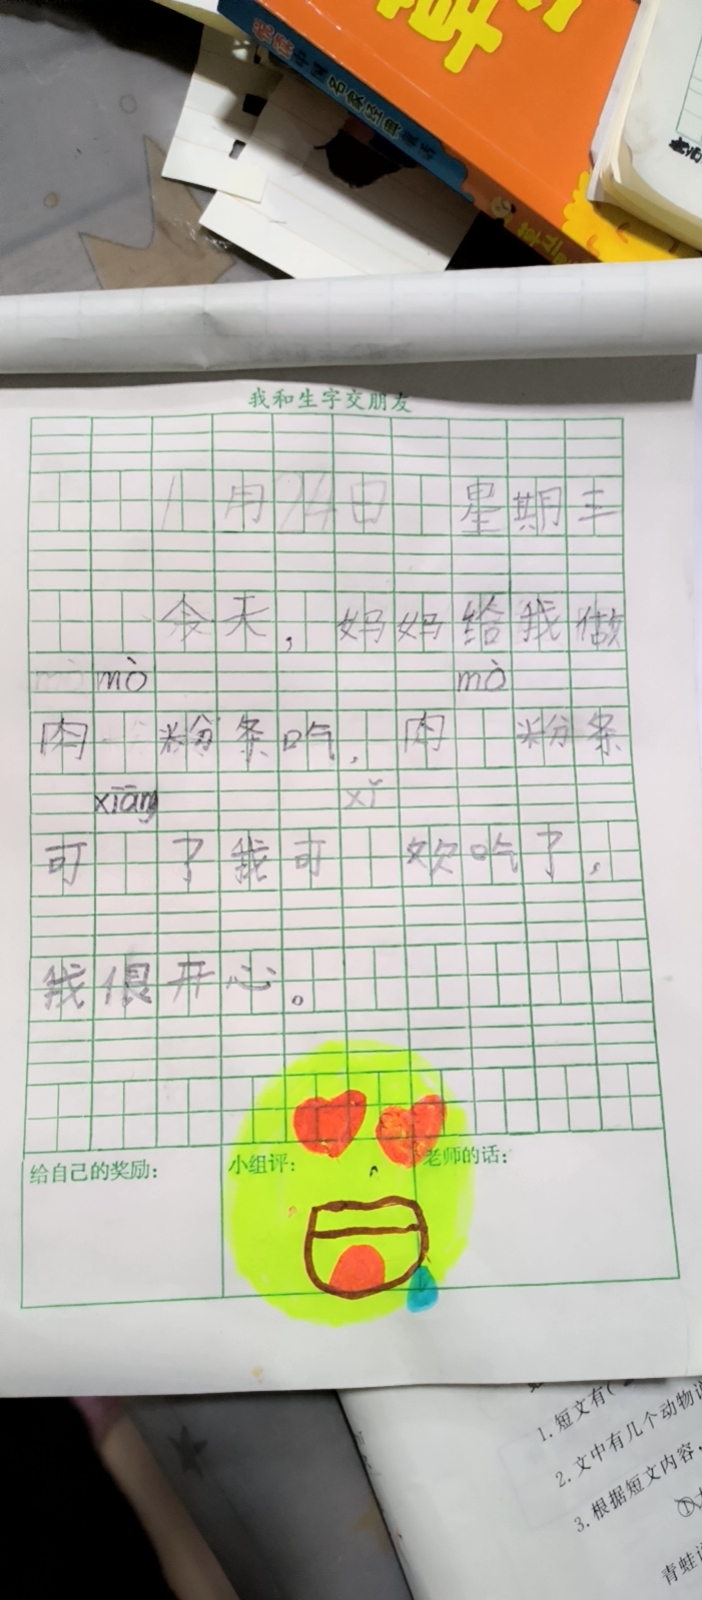 章
我和生字交朋友
1月24日 星期三
今天，妈妈给我做
mò mò mò
肉 粉条吃，肉 粉条
xiāng xǐ
可 了我可 欢吃了，
我很开心。
给自己的奖励： 小组评： 老师的话：
1.短文有(
2.文中有几个动物
3.根据短文内容，
①
青蛙